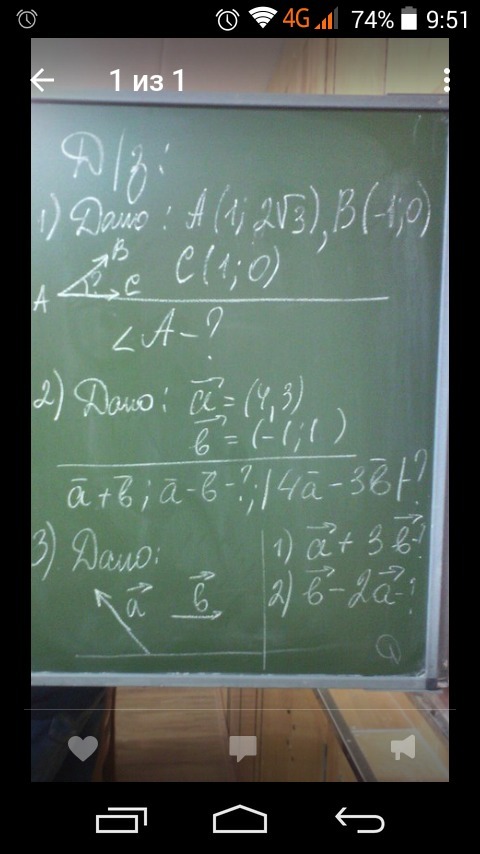 4G 74% 9:51
1 из 1
Д/з:
1) Дано: A(1; 2√3), B(-1; 0)
C(1; 0)
A B C ?
∠A - ?
2) Дано: a⃗ = (4, 3)
b⃗ = (-1; 1)
a̅ + b̅; a̅ - b̅ - ?; |4a̅ - 3b̅| ?
3) Дано:
a⃗ b⃗
1) a⃗ + 3b⃗ - ?
2) b⃗ - 2a⃗ - ?